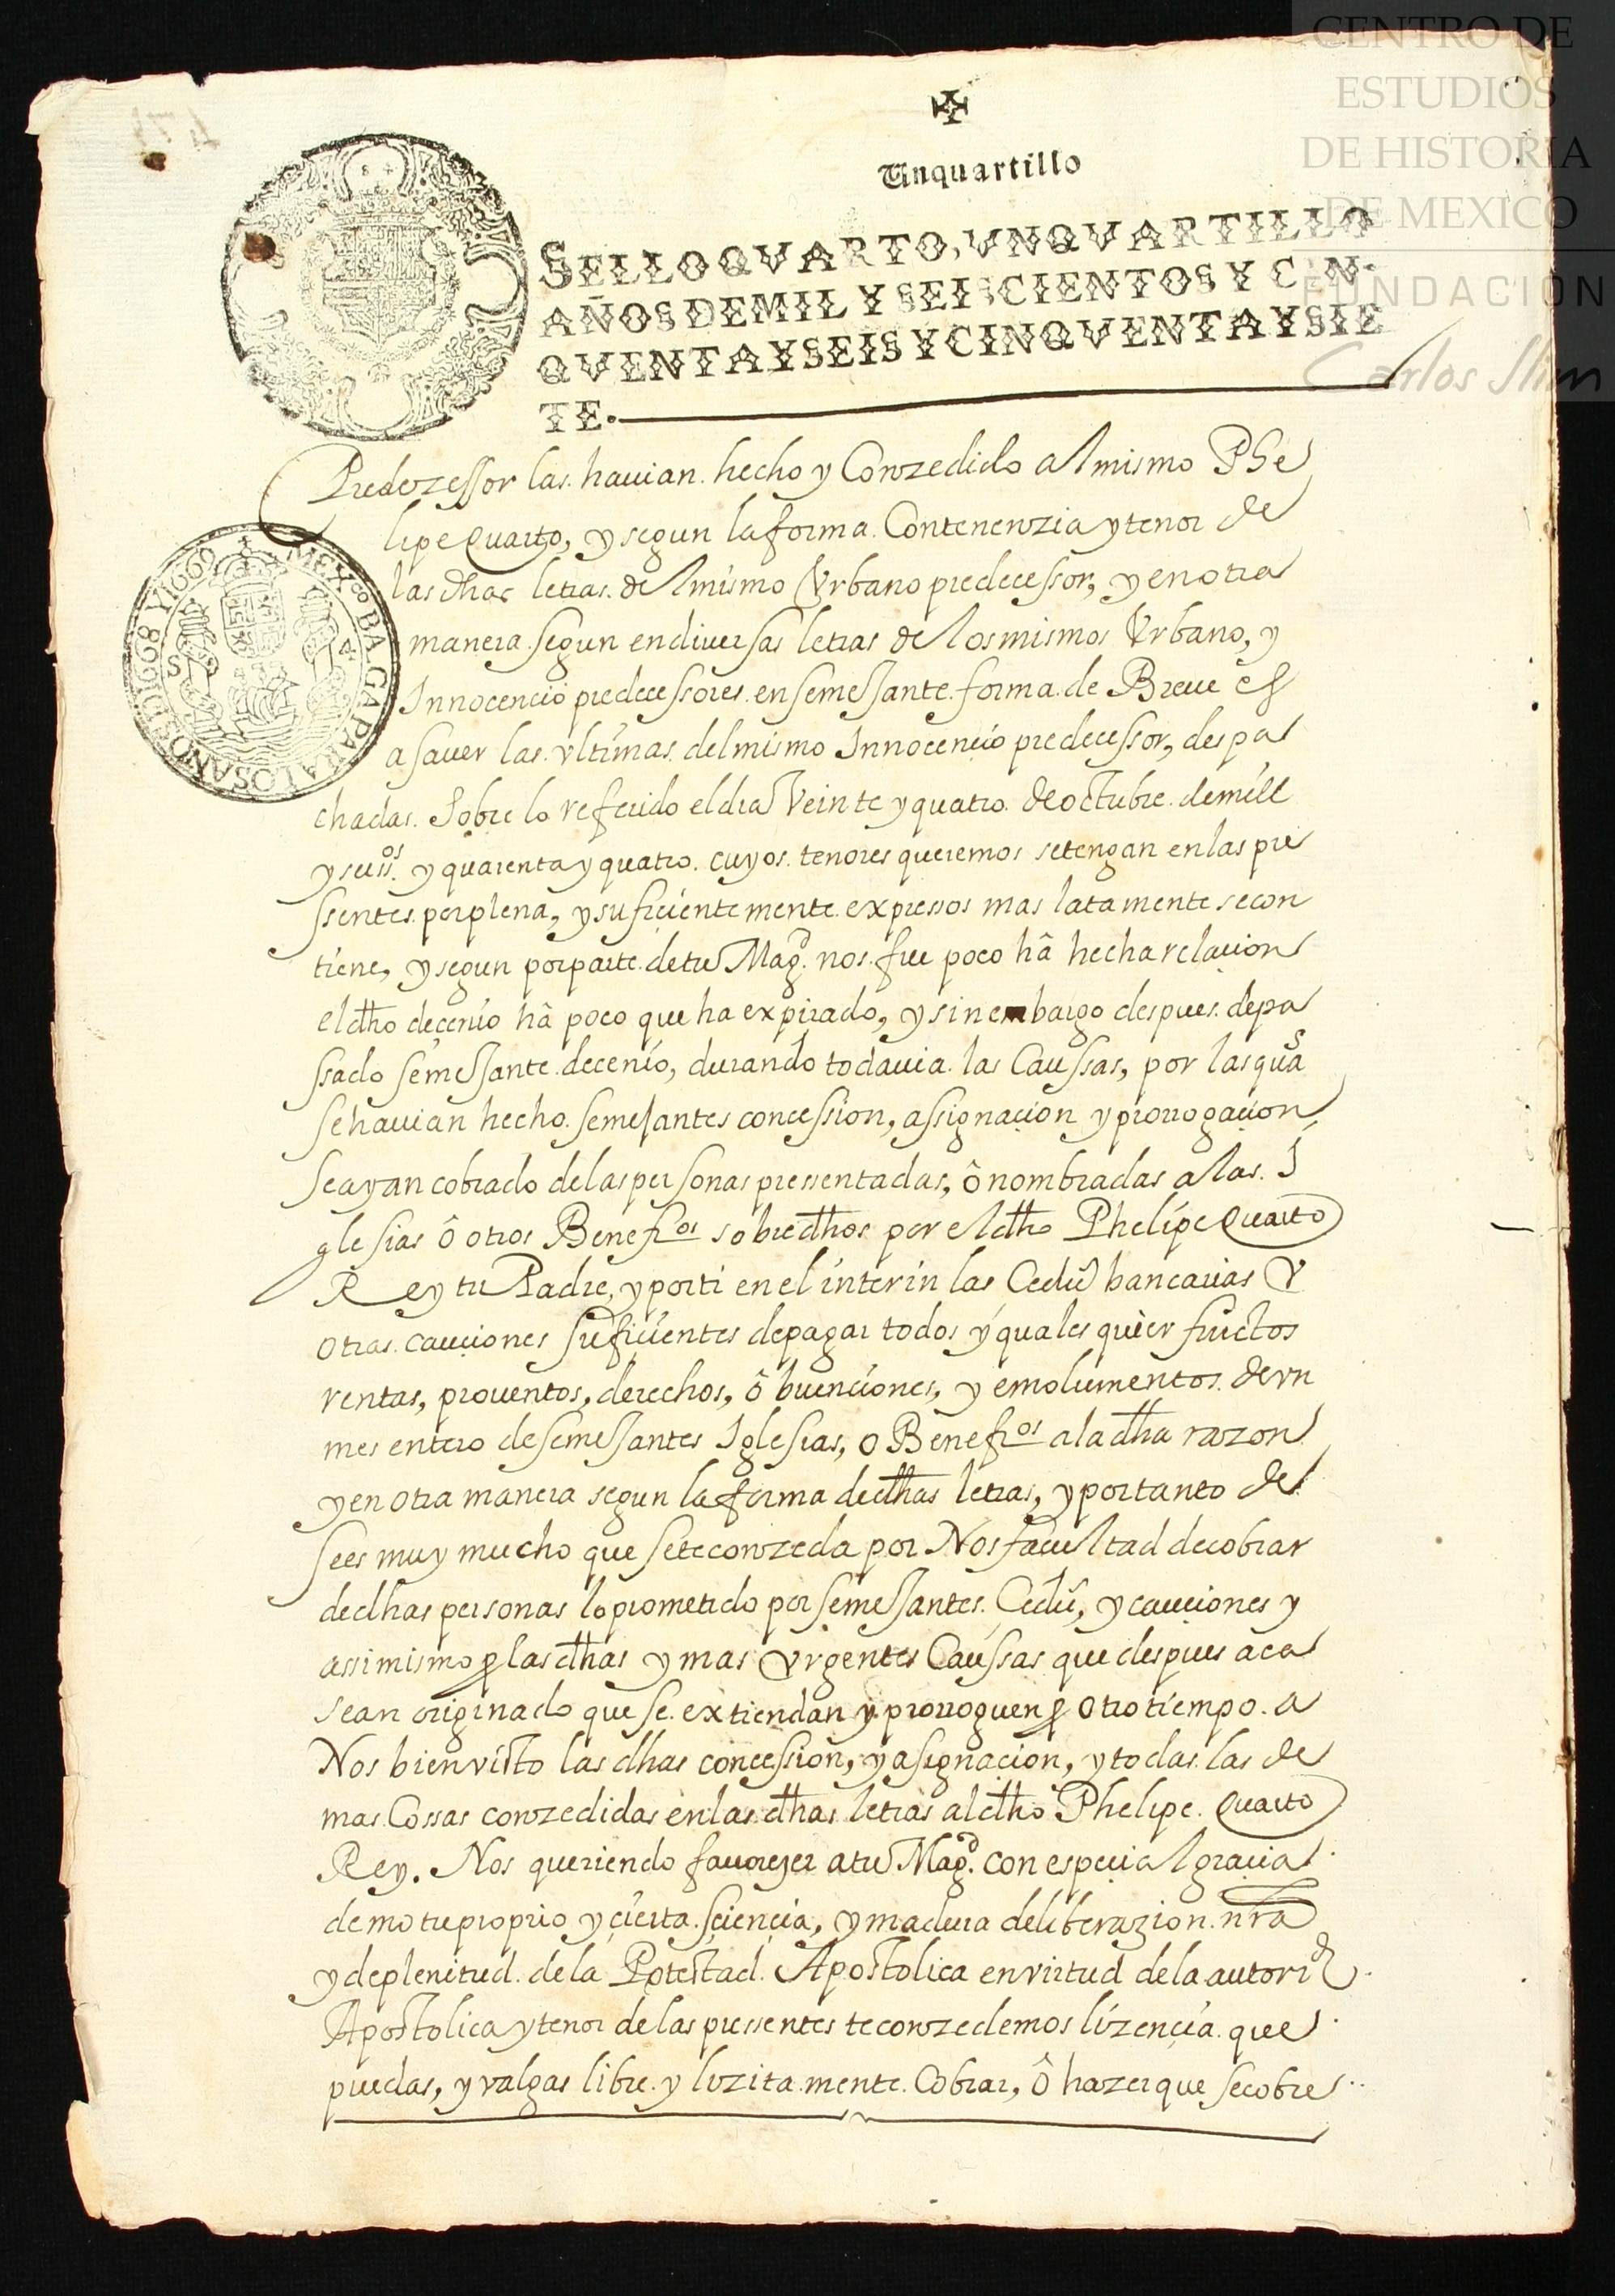 CENTRO DE
ESTUDIOS
DE HISTORIA
DE MEXICO
FUNDACION
Carlos Slim
Unquartillo
SELLO QVARTO, VNQVARTILLO
AÑOS DE MIL Y SEISCIENTOS Y CIN-
QVENTA Y SEIS Y CINQVENTA Y SIE
TE.
MEX BA GA PARA LOS ANOS DI 1668 Y 1669
Predezessor las havian hecho y Conzedido al mismo Phe
lipe Quarto, y segun la forma Contenenzia y tenor de
las dhas letras del mismo Vrbano predecessor, y en otra
manera segun en diversas letras de los mismos Vrbano, y
Innocencio predecessores en semejante forma de Breue es
a sauer las vltimas del mismo Innocencio predecessor, despa
chadas sobre lo referido el dia Veinte y quatro de octubre de mill
y seiss.os y quarenta y quatro cuyos tenores queremos se tengan en las pre
ssentes por plena, y suficientemente expressos mas latamente se con
tiene, y segun por parte de tu Mag.d nos fue poco hâ hecha relacion
el dho decenio hâ poco que ha expirado, y sin embargo despues de pa
ssado semejante decenio, durando todauia las Caussas, por las qua.s
se hauian hecho semejantes concession, assignacion y prorrogacion
se ayan cobrado de las personas pressentadas, ô nombradas a las I
glesias ô otros Benefi.os sobredhos por el dho Phelipe Quarto
Rey tu Padre, y por ti en el interin las Cedu bancarias V
otras cauciones suficientes de pagar todos y quales quier fructos
rentas, prouentos, derechos, ô buenciones, y emolumentos de vn
mes entero de semejantes Iglesias, o Benefi.os a la dha razon
y en otra manera segun la forma de dhas letras, y por tanto de
sees muy mucho que se te conzeda por Nos facultad de cobrar
de dhas personas lo prometido por semejantes Cedu, y cauciones y
assimismo p las dhas y mas vrgentes Caussas que despues aca
sean originado que se extiendan y prorroguen p otro tiempo a
Nos bien visto las dhas concession, y asignacion, y todas las de
mas Cossas conzedidas en las dhas letras al dho Phelipe Quarto
Rey. Nos queriendo fauoreçer a tu Mag.d con especial gracia
de motu proprio y çierta sciencia, y madura deliberazion nra
y de plenitud de la Potestad Apostolica en virtud de la autori.d
Apostolica y tenor de las pressentes te conzedemos lizençia que
puedas, y valgas libre y lizitamente Cobrar, ô hazer que se cobre